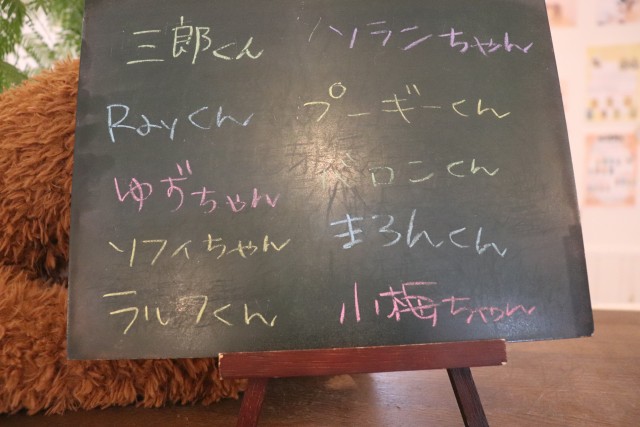 三郎くん
Rayくん
ゆずちゃん
ソフィちゃん
ラルフくん
ソランちゃん
プーギーくん
ロンくん
まろんくん
小梅ちゃん